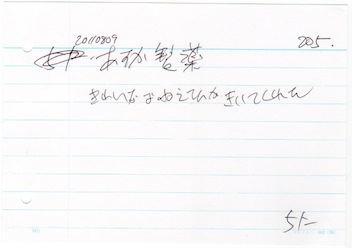 20110809
205.
あすか製薬
きれいなおねえさんがきいてくれた